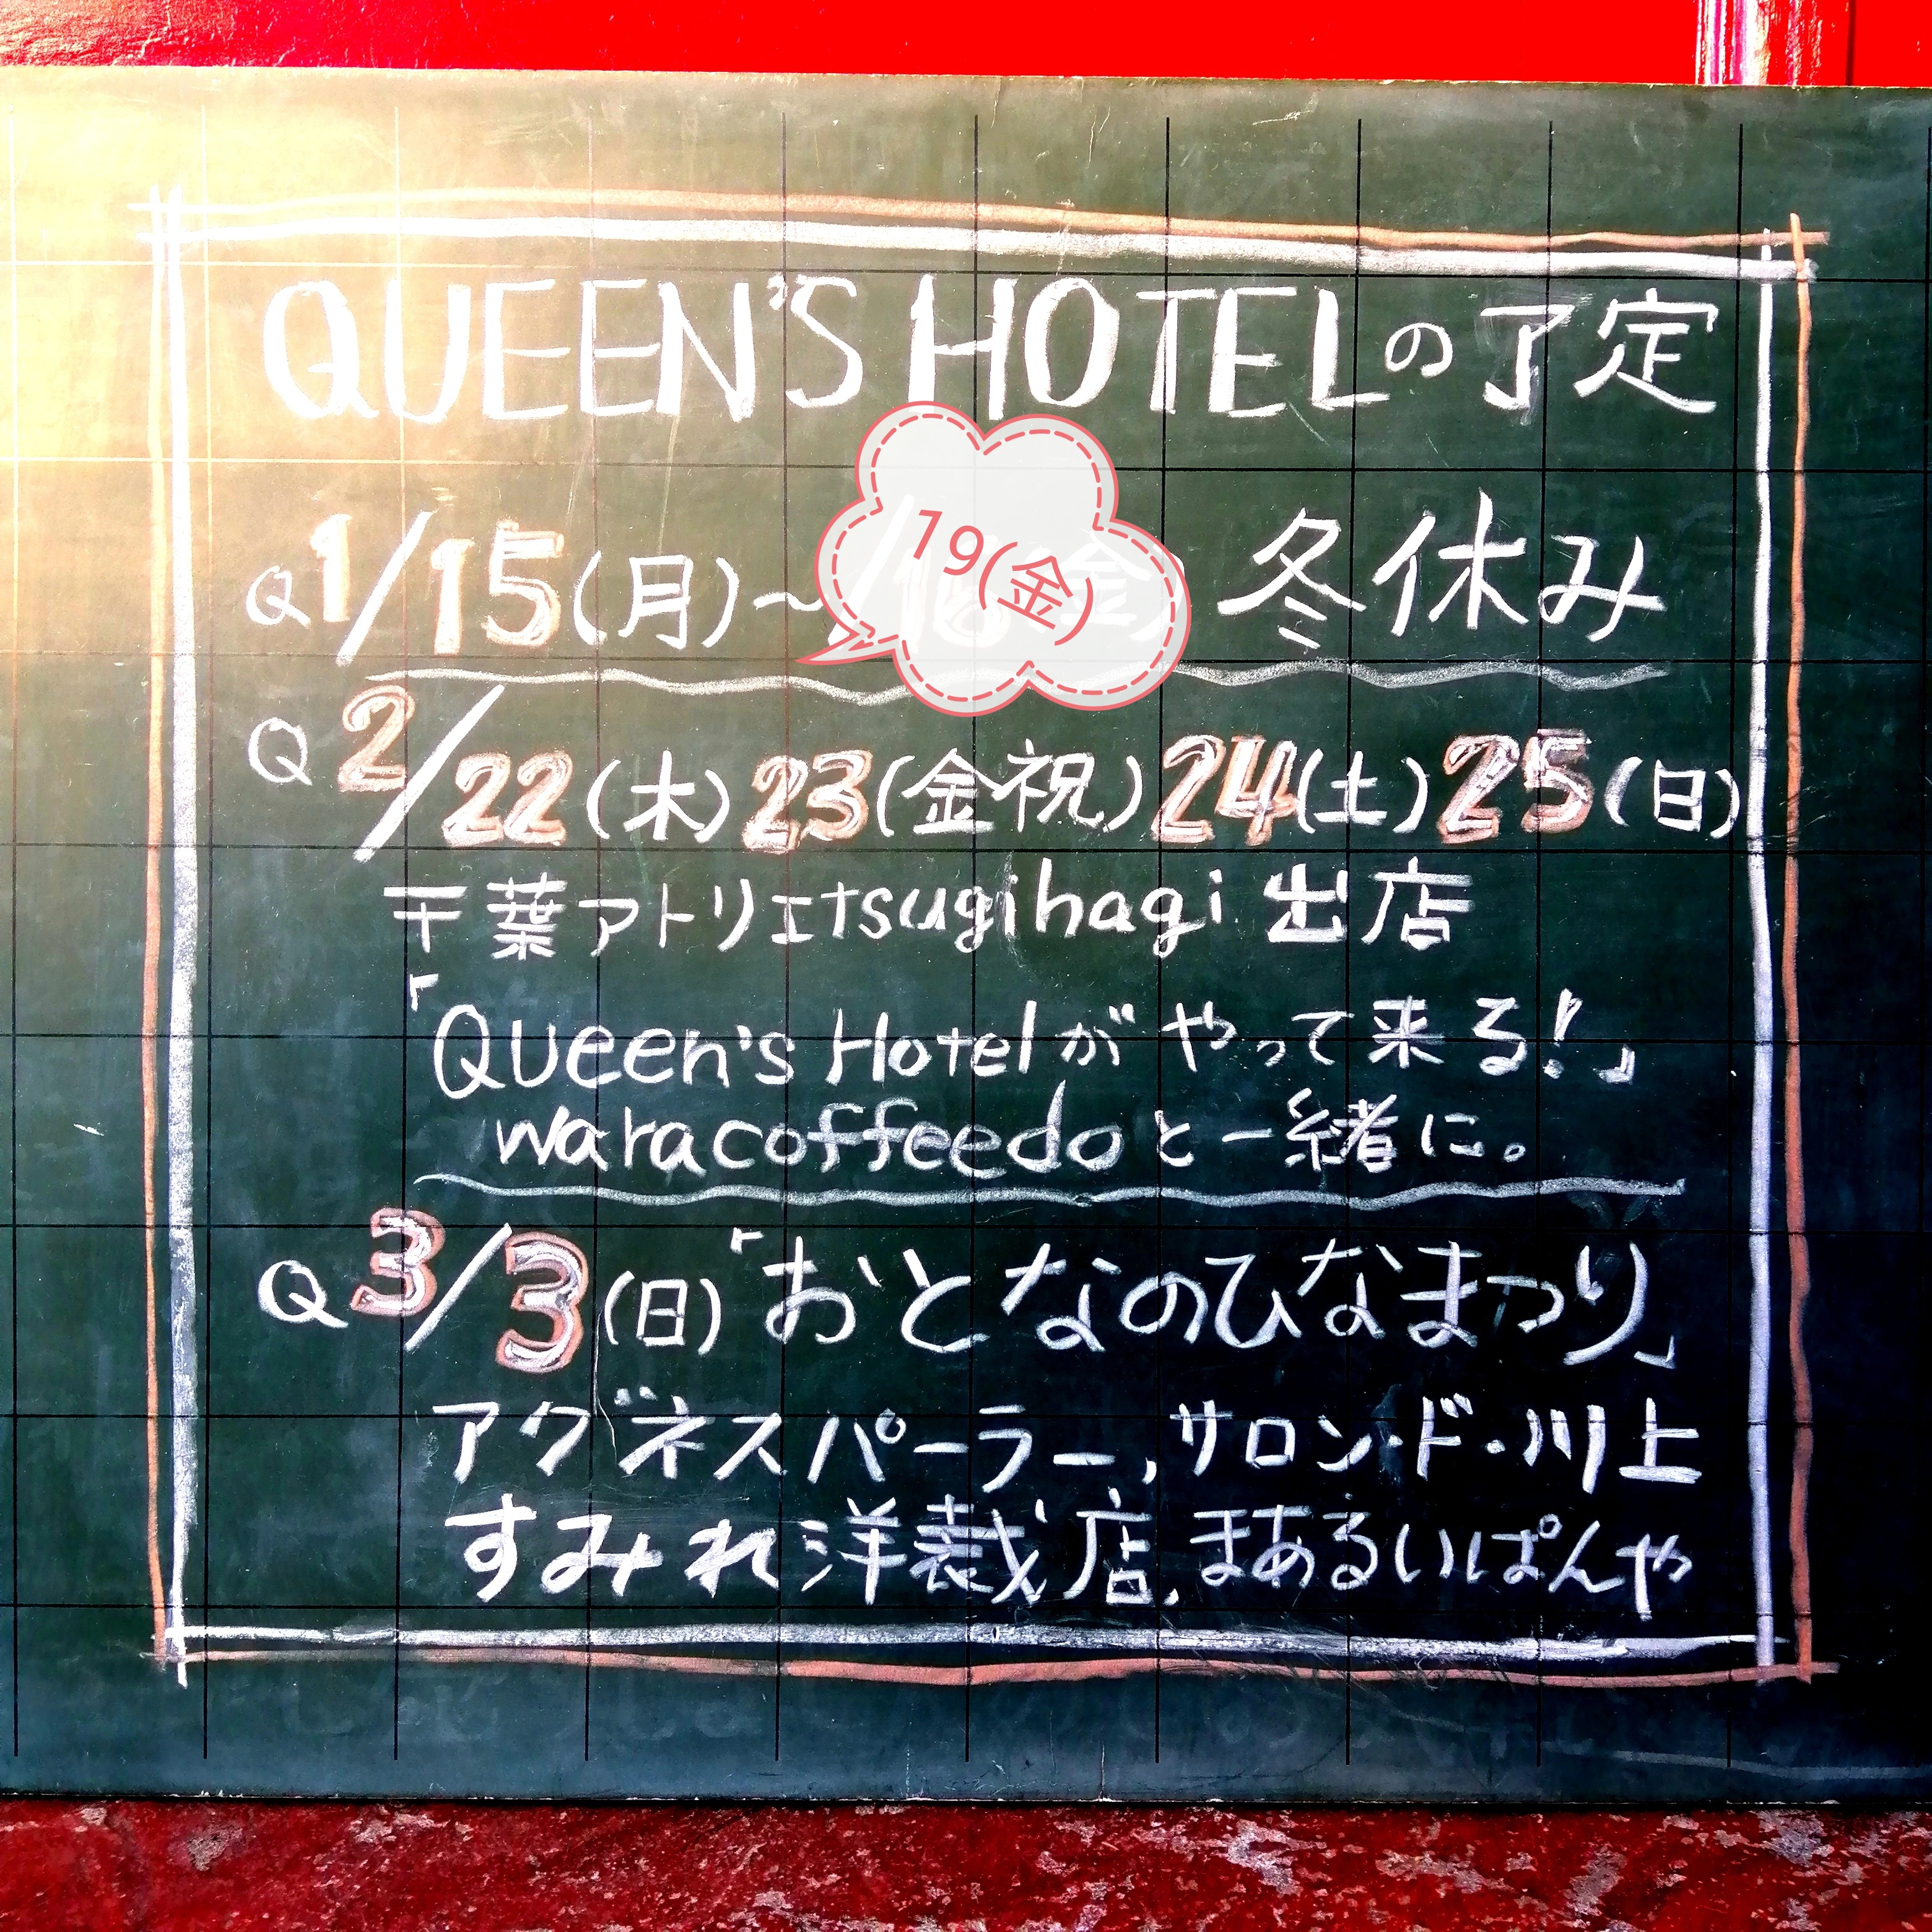 QUEEN'S HOTELの予定
Q 1/15(月)~ 19(金) 冬休み
Q 2/22(木) 23(金祝) 24(土) 25(日)
千葉アトリエtsugihagi 出店
「Queen's Hotelがやって来る!」
waracoffeedoと一緒に。
Q 3/3(日)「おとなのひなまつり」
アグネスパーラー, サロン・ド・川上
すみれ洋裁店, まあるいぱんや